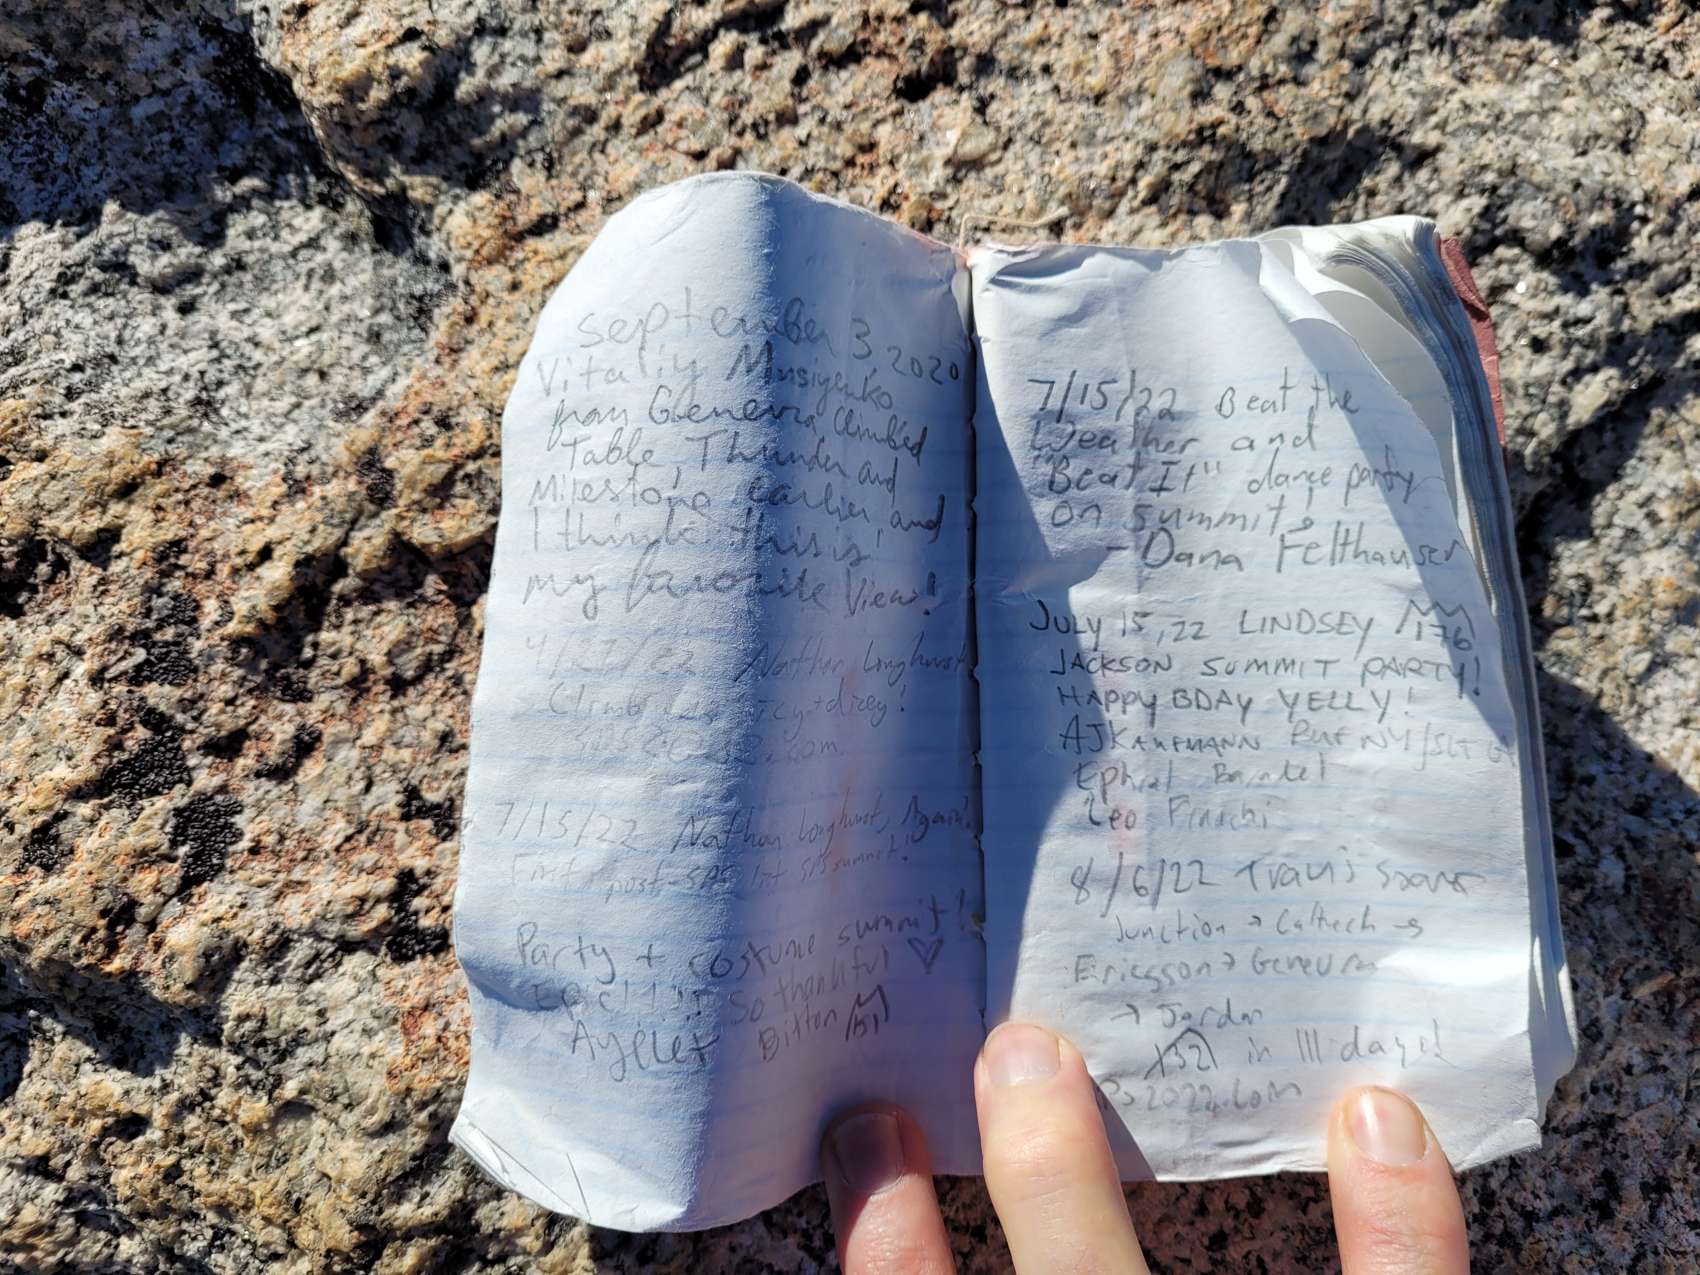 September 3 2020
Vitaliy Musiyenko
from Geneva, Climbed
Table, Thunder and
Milestone earlier, and
I think this is
my favorite View!
Nathan Longhurst
7/15/22 Nathan Longhurst, Again!
First post-SPS list SPS summit!
Party + costume summit!
Epic!!!! So thankful ♡
Ayelet Bitton 151
7/15/22 Beat the
Weather and
"Beat It" dance party
on summit,
- Dana Felthauser
JULY 15, 22 LINDSEY 176
JACKSON SUMMIT PARTY!
HAPPY BDAY YELLY!
AJ KAUFMANN
Leo
8/6/22 Travis Soares
Junction → Caltech →
Ericsson → Geneva
→ Jordan
132 in 111 days!
2022.com